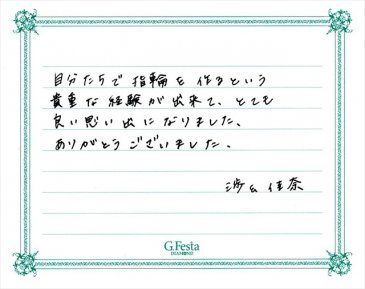 自分たちで指輪を作るという
貴重な経験が出来て、とても
良い思い出になりました。
ありがとうございました。
佳奈
G.Festa
DIAMOND